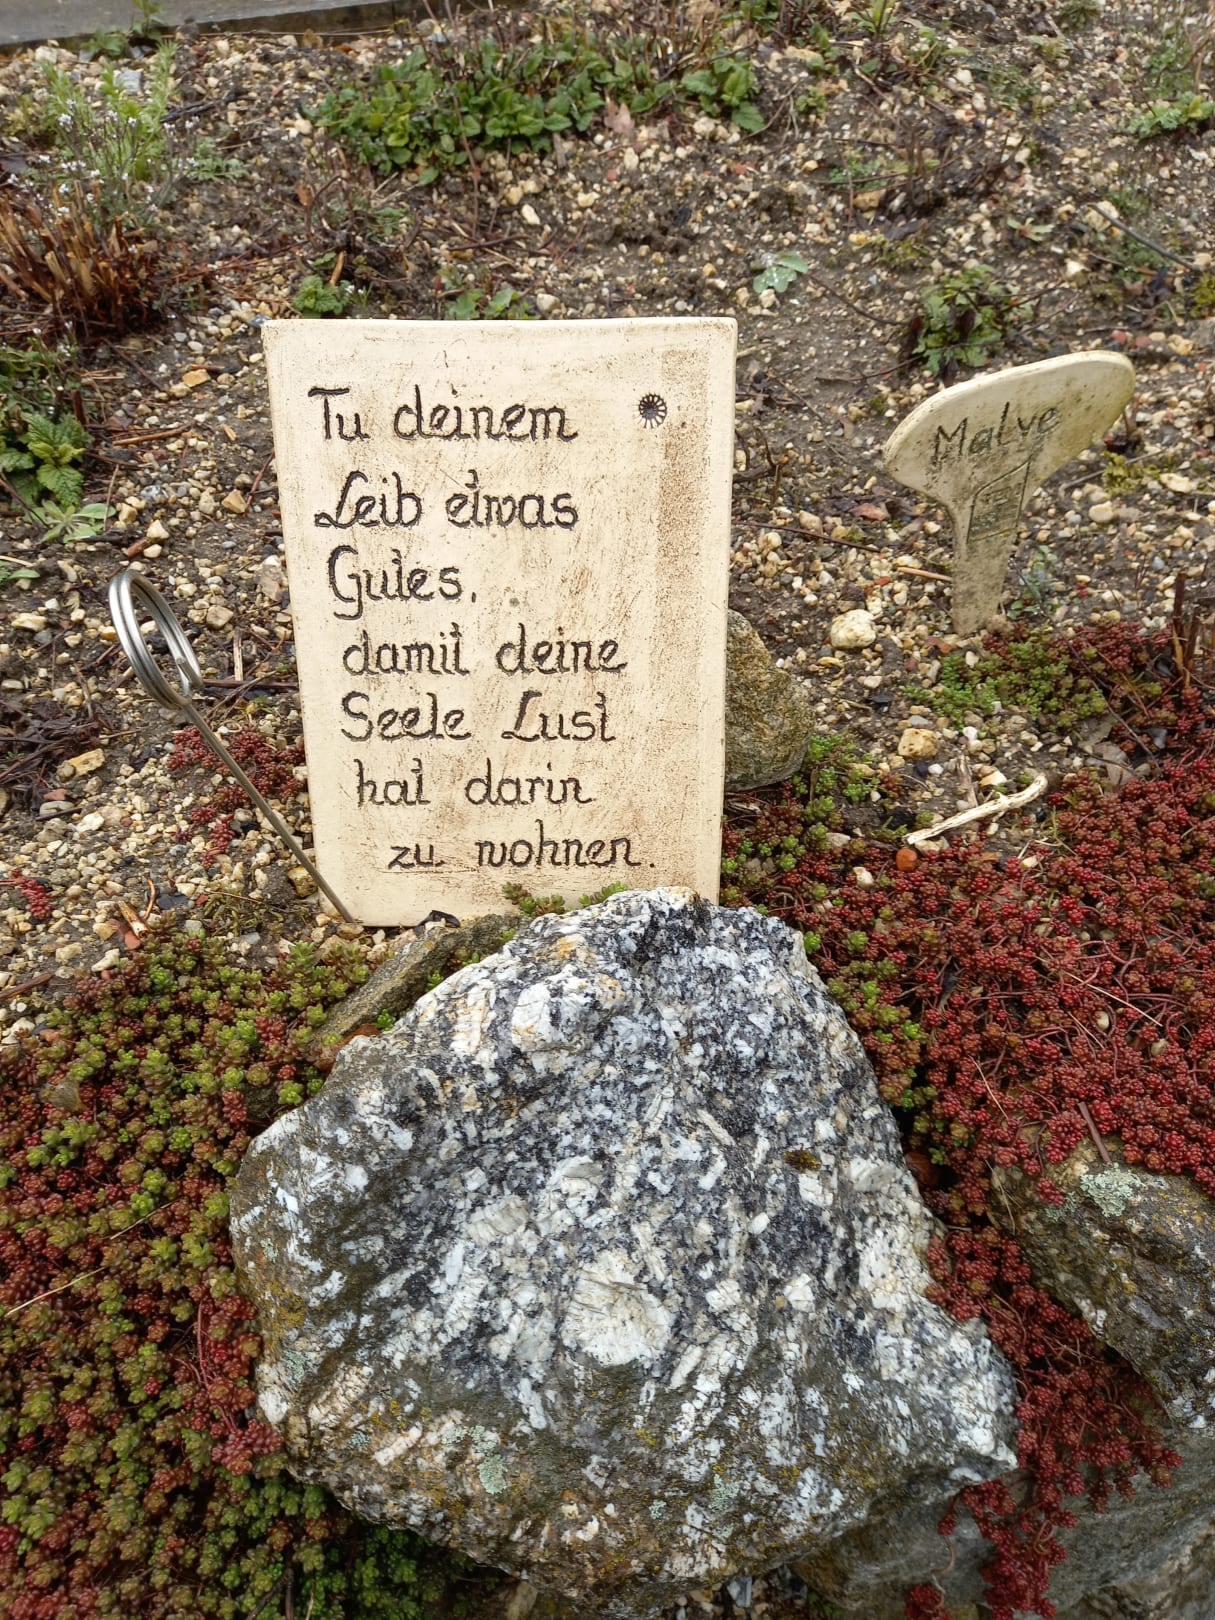 Tu deinem
Leib etwas
Gutes,
damit deine
Seele Lust
hat darin
zu wohnen.
Malve